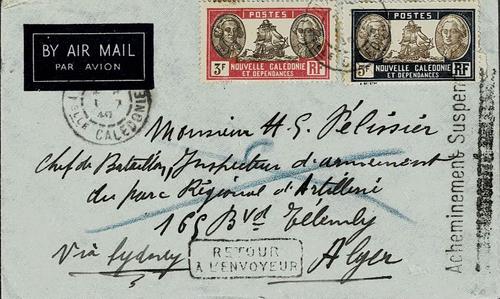 BY AIR MAIL
PAR AVION
POSTES
NOUVELLE CALÉDONIE
ET DÉPENDANCES
3F RF
POSTES
NOUVELLE CALÉDONIE
ET DÉPENDANCES
5F RF
CALEDONIE
Monsieur H. G. Pélissier
Chef de Bataillon, Inspecteur d'armement
du parc Régional d'Artillerie
165 Bvd Télemly
Via Sydney
RETOUR
A L'ENVOYEUR
Alger
Acheminement Suspen